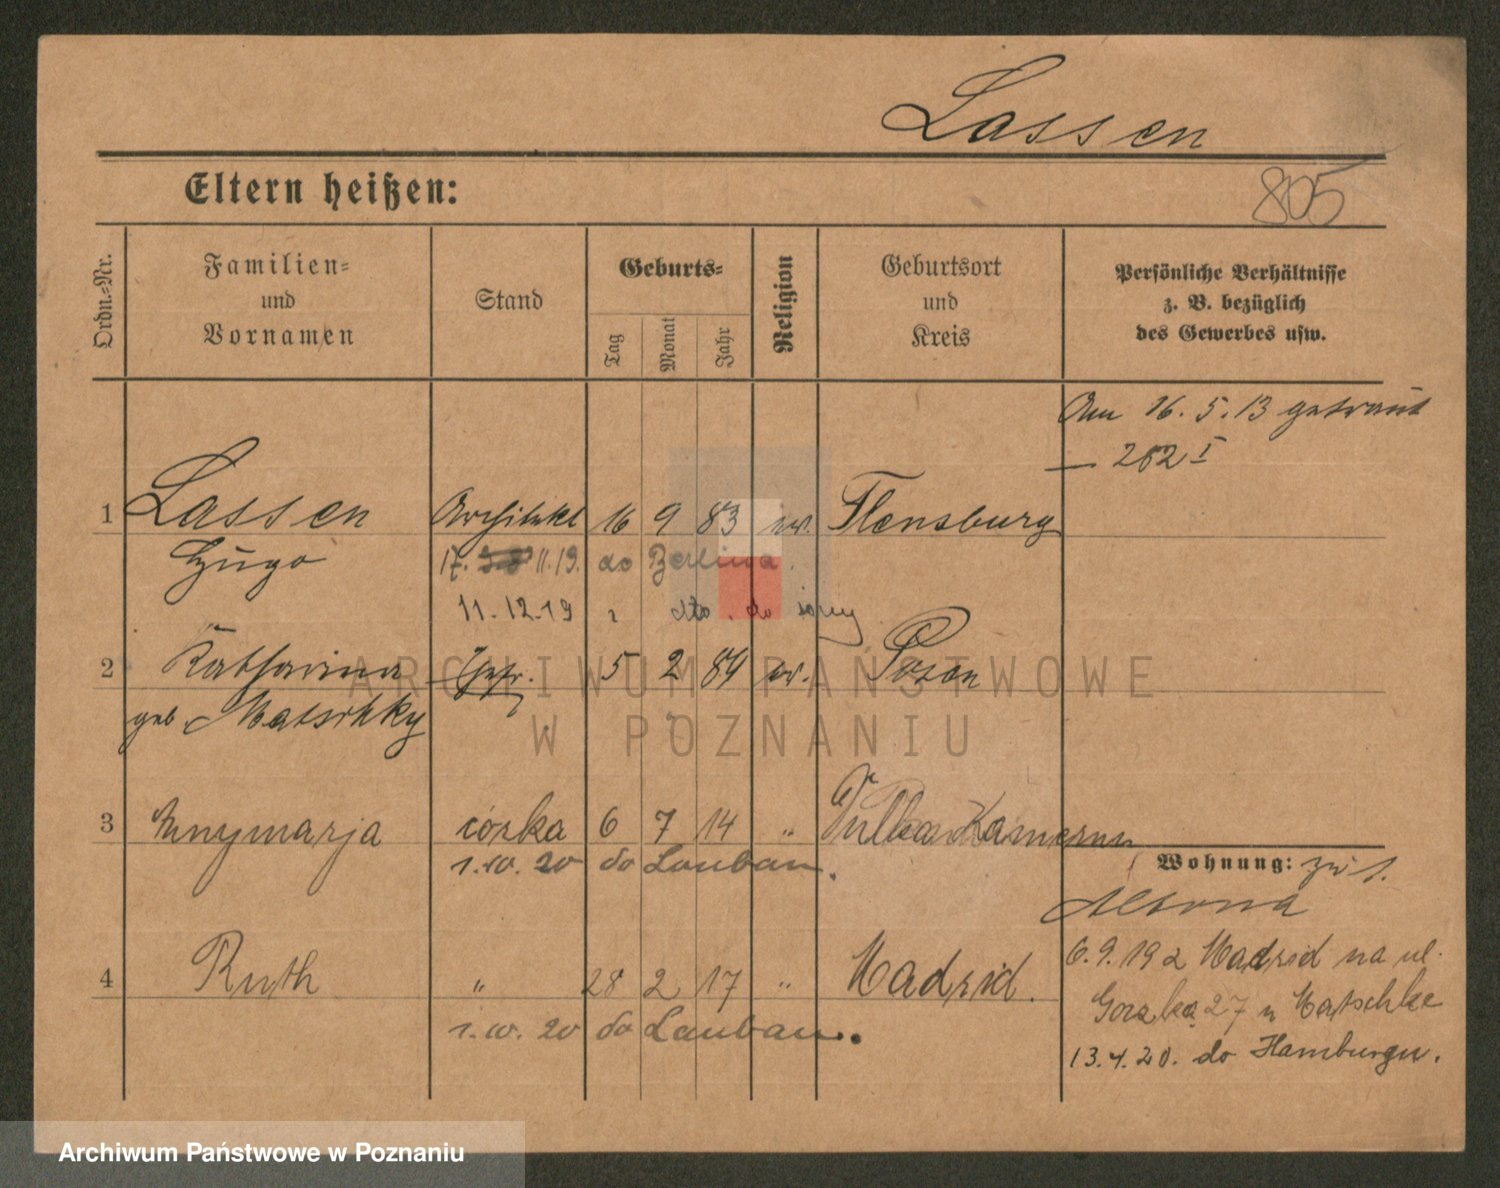 Lassen
805
Eltern heißen:
Ordn.-Nr.
Familien-
und
Vornamen
Stand
Geburts-
Tag
Monat
Jahr
Religion
Geburtsort
und
Kreis
Persönliche Verhältnisse
z. B. bezüglich
des Gewerbes usw.
Am 16. 5. 13 getraut
— 262 I
1 Lassen Architekt 16 9 83 ev. Flensburg
Hugo 17. 11. 19. do Berlina.
11. 12. 19 dto. do żony
2 Katharina 5 2 84 ev. Posen
geb. Matschky
3 Annymarja córka 6 7 14 " Kamerun
1. 10. 20 do Lauban.
Wohnung:
Altona
4 Ruth " 28 2 17 " Madrid.
1. 10. 20 do Lauban.
6. 9. 19 z Madrid na ul.
27 u Matschke
13. 4. 20. do Hamburga.
ARCHIWUM PAŃSTWOWE
W POZNANIU
Archiwum Państwowe w Poznaniu